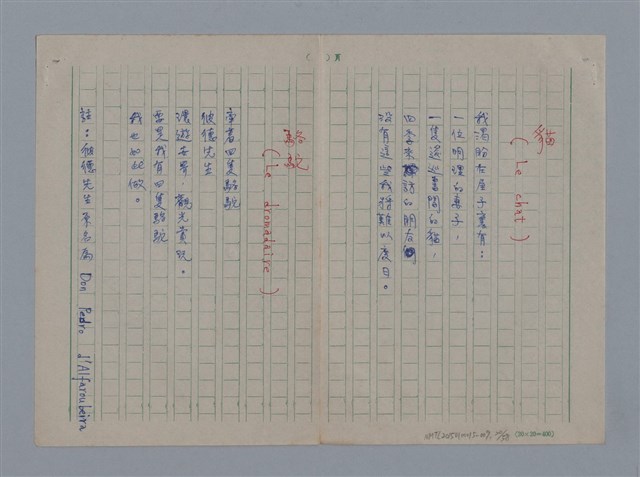 貓
( Le chat )
我渴盼在房子裏有：
一位明理的妻子，
一隻逡巡書間的貓，
四季來訪的朋友
沒有這些我將難以度日。
駱駝
( Le dromadaire )
牽着四隻駱駝
彼德先生
漫遊世界，觀光賞玩。
要是我有四隻駱駝
我也如此做。
註：彼德先生原名為 Don Pedro d'Alfaroubeira
( )頁
(20×20=400)